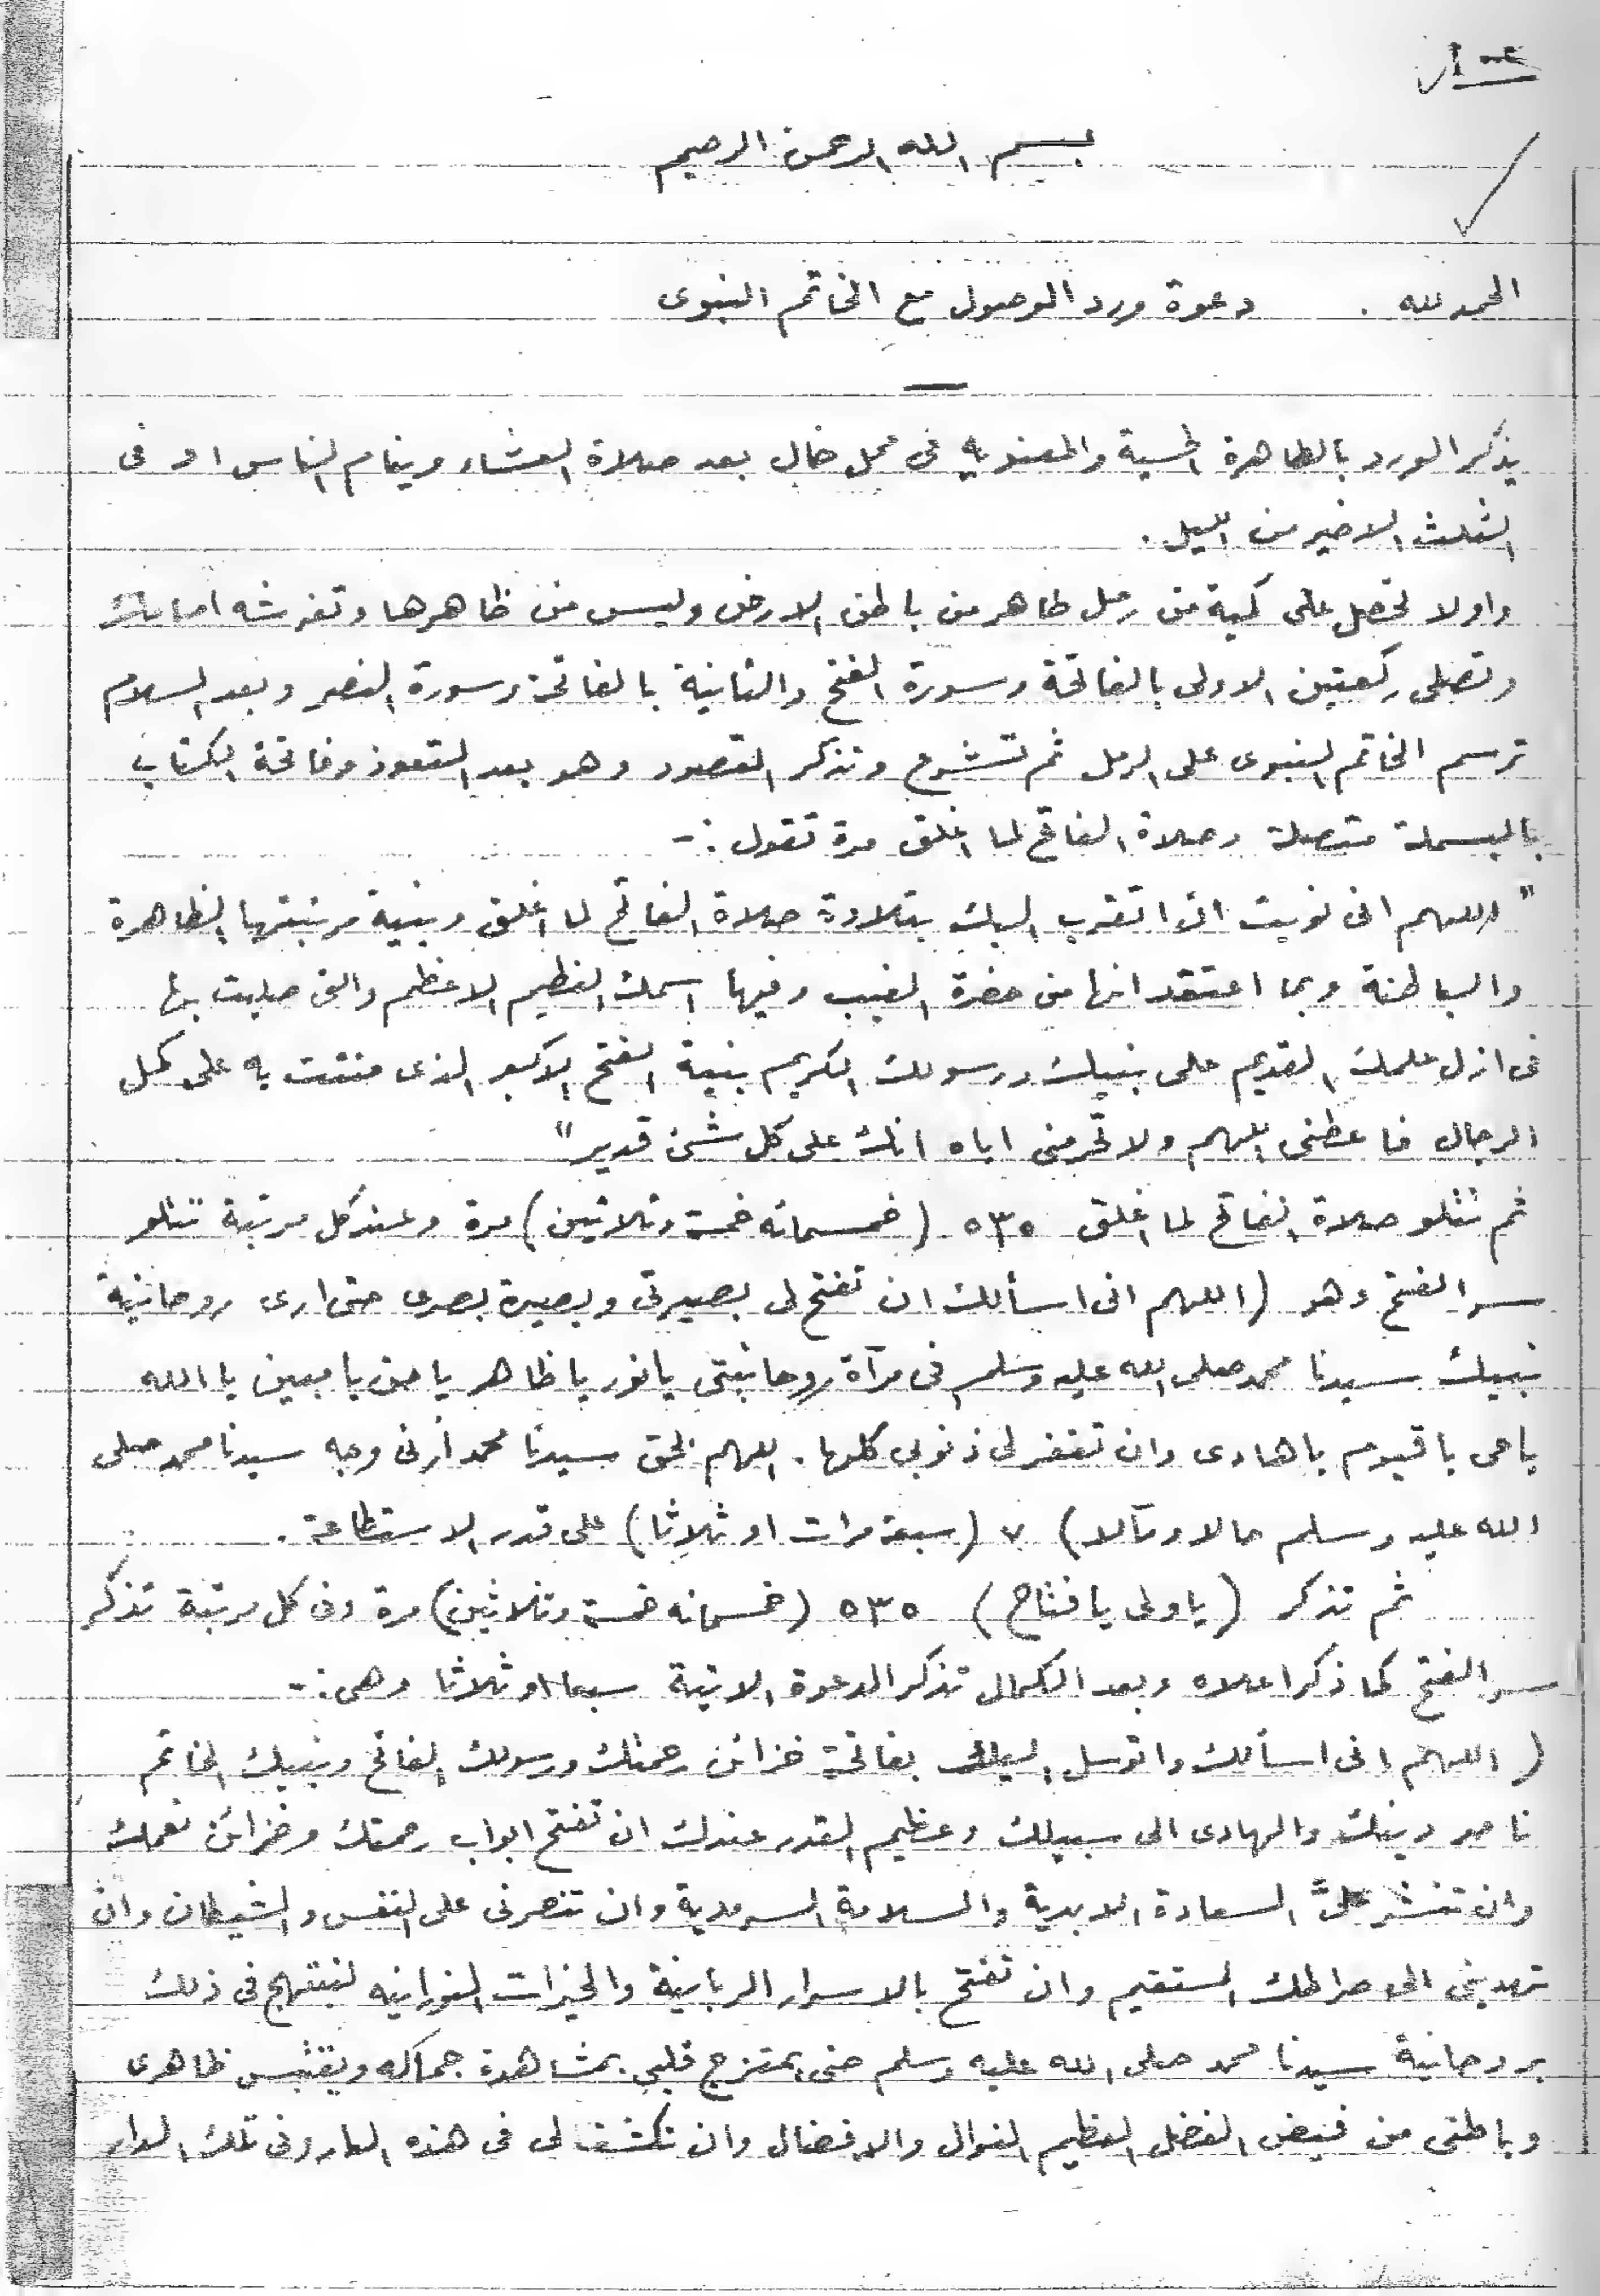 بسم الله الرحمن الرحيم
الحمد لله . دعوة ورد الوصول مع الخاتم النبوى
يذكر الورد بالطاهرة الحسية والمعنويه فى محل خال بعد صلاة العشاء وينام الناس او فى
الثلث الاخير من الليل .
واولا تحصل على كمية من رمل طاهر من باطن الارض وليس من ظاهرها وتفرشه امامك
وتصلى ركعتين الاولى بالفاتحة وسورة الفتح والثانية بالفاتحة وسورة النصر وبعد السلام
ترسم الخاتم النبوى على الرمل ثم تشرع وتذكر المقصود وهو بعد التعوذ وفاتحة الكتاب
بالبسملة متصلة وصلاة الفاتح لما اغلق مرة تقول :-
" اللهم انى نويت ان اتقرب اليك بتلاوة صلاة الفاتح لما اغلق وبنية مرتبتها الظاهرة
والباطنة وبما اعتقد انها من حضرة الغيب وفيها اسمك العظيم الاعظم والتى صليت بها
فى ازل علمك القديم على نبيك ورسولك الكريم بنية الفتح الاكبر الذى مننت به على كمل
الرجال فاعطنى اللهم ولا تحرمنى اياه انك على كل شئ قدير "
ثم تتلو صلاة الفاتح لما اغلق ٥٣٥ (خمسمائه خمسة وثلاثين) مرة وعند كل مرتبة تتلو
سر الفتح وهو (اللهم انى اسألك ان تفتح لى بصيرتى وبصيرة بصرى حتى ارى روحانية
نبيك سيدنا محمد صلى الله عليه وسلم فى مرآة روحانيتى يانور يا ظاهر يا حق يا مبين يا الله
ياحى يا قيوم يا هادى وان تغفر لى ذنوبى كلها . اللهم بحق سيدنا محمد أرنى وجه سيدنا محمد صلى
الله عليه وسلم حالا ومآلا) ٧ (سبعة مرات او ثلاثا) على قدر الاستطاعة .
ثم تذكر (ياولى يا فتاح) ٥٣٥ (خمسمائه خمسة وثلاثين) مرة وفى كل مرتبة تذكر
سر الفتح كما ذكر اعلاه وبعد الكمال تذكر الدعوة الاتية سبعا او ثلاثا وهى :-
( اللهم انى اسألك واتوسل اليك بفاتحة خزائن رحمتك ورسولك الفاتح ونبيك الخاتم
ناصر دينك والهادى الى سبيلك وعظيم القدر عندك ان تفتح ابواب رحمتك وخزائن نعمك
وان تنشر علىَّ السعادة الابدية والسلامة السرمدية وان تنصرنى على النفس والشيطان وان
تهدينى الى صراطك المستقيم وان تفتح بالاسرار الربانية والخيرات النورانيه لنبتهج فى ذلك
بروحانية سيدنا محمد صلى الله عليه وسلم حتى يمتزج قلبى بمشاهدة جماله ويقتبس ظاهرى
وباطنى من فيض الفضل العظيم النوال والافضال وان تكشف لى فى هذه الدار وفى تلك الدار